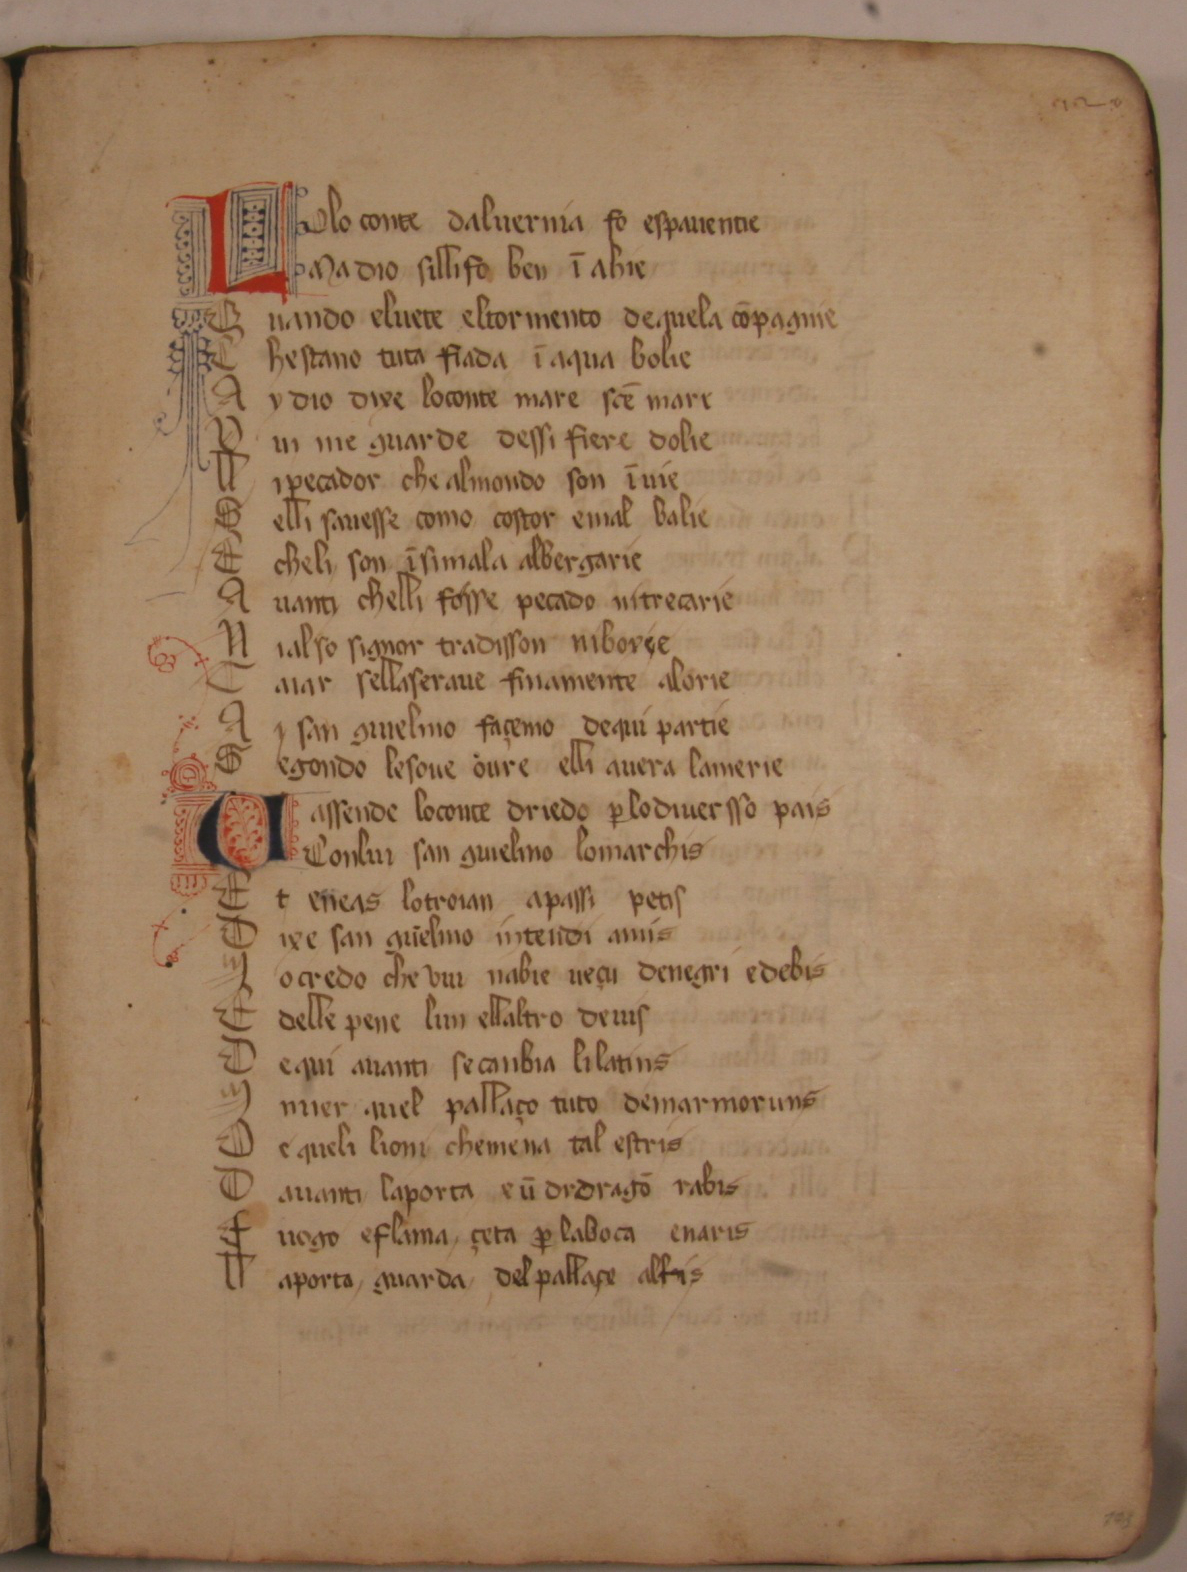 LOlo conte daluernia fo espauentie
Ma dio sillifo ben ī ahie
Quando eluete eltormento dequela cōpagnie
Che stano tuta fiada ī aqua bolie
Ay dio dixe loconte mare scē marie
Vu me guarde dessi fiere dolie
Li pecador che almondo son ī uie
Selli sauesse como costor e mal balie
E cheli son ī si mala albergarie
Auanti chelli fosse pecado ni trecarie
Ni also signor tradisson ni borçe
Caiar sellaseraue finamente alorie
Ay san guielmo façemo dequi partie
Segondo lesoue oure elli auera lamerie
Uassende loconte driedo ꝑlodiuersso pais
Conlui san guielmo lomarchis
Et eneas lotroian apassi petis
Dixe san guielmo intendi amis
Io credo che vui nabie ueçu denegri e debis
E delle pene lun ellaltro deuis
De qui auanti se canbia li latins
In uer quel pallaço tuto demarmoruns
De queli lioni chemena tal estris
Dauanti laporta e ū drdragō rabis
Fuogo e flama çeta ꝑ laboca enaris
La porta guarda del pallaçe